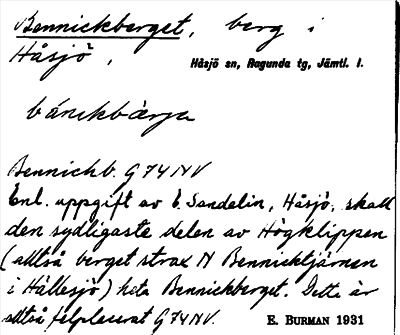 Bennickberget, berg i
Håsjö,
Håsjö sn, Ragunda tg, Jämtl. l.
bánıkbærja
Bennickb. G74NV
Enl. uppgift av E. Sandelin, Håsjö, skall
den sydligaste delen av Högklippen
(alltså berget strax N Bennicktjärnen
i Hällesjö) heta Bennickberget. Detta är
alltså felplacerat G74NV.
E. BURMAN 1931